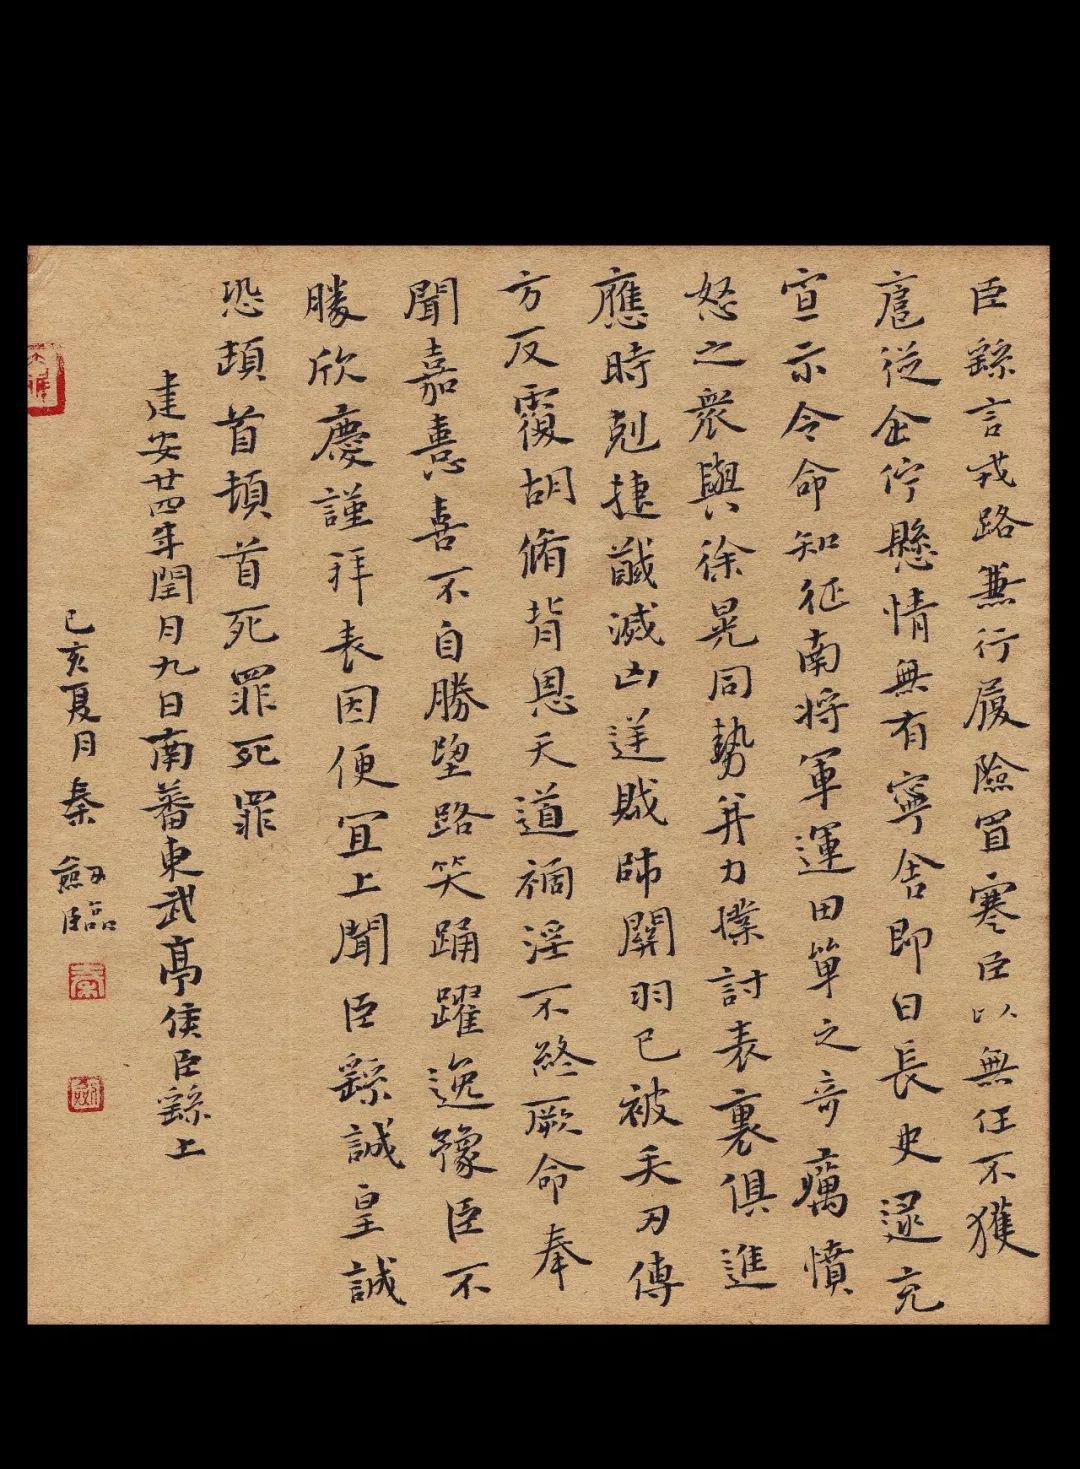 臣繇言戎路兼行履險冒寒臣以無任不獲
扈從企佇懸情無有寧舍即日長史逯充
宣示令命知征南將軍運田單之奇厲憤
怒之衆與徐晃同勢并力撲討表裏俱進
應時剋捷馘滅凶逆賊帥關羽已被矢刃傅
方反覆胡脩背恩天道禍淫不終厥命奉
聞嘉憙喜不自勝望路笑踊躍逸豫臣不
勝欣慶謹拜表因便宜上聞臣繇誠皇誠
恐頓首頓首死罪死罪
建安廿四年閏月九日南蕃東武亭侯臣繇上
己亥夏月秦劔臨
秦